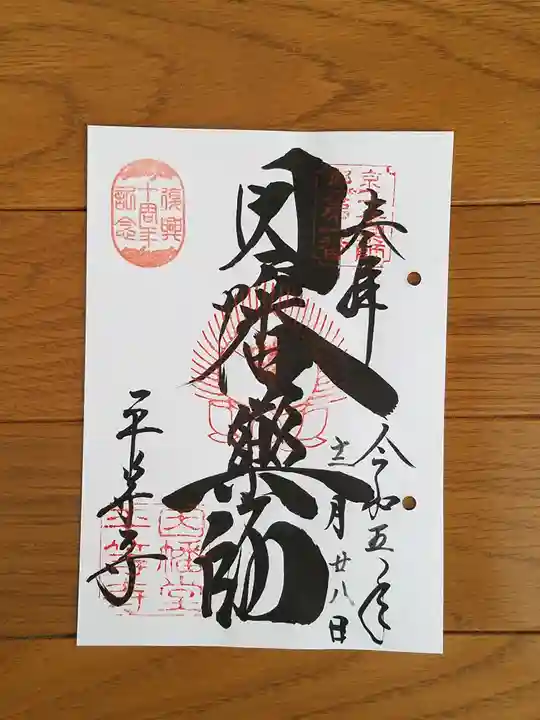 奉拝
令和五年
十二月廿八日
因幡薬師
平等寺
復興
十周年
記念
因幡堂
平等寺